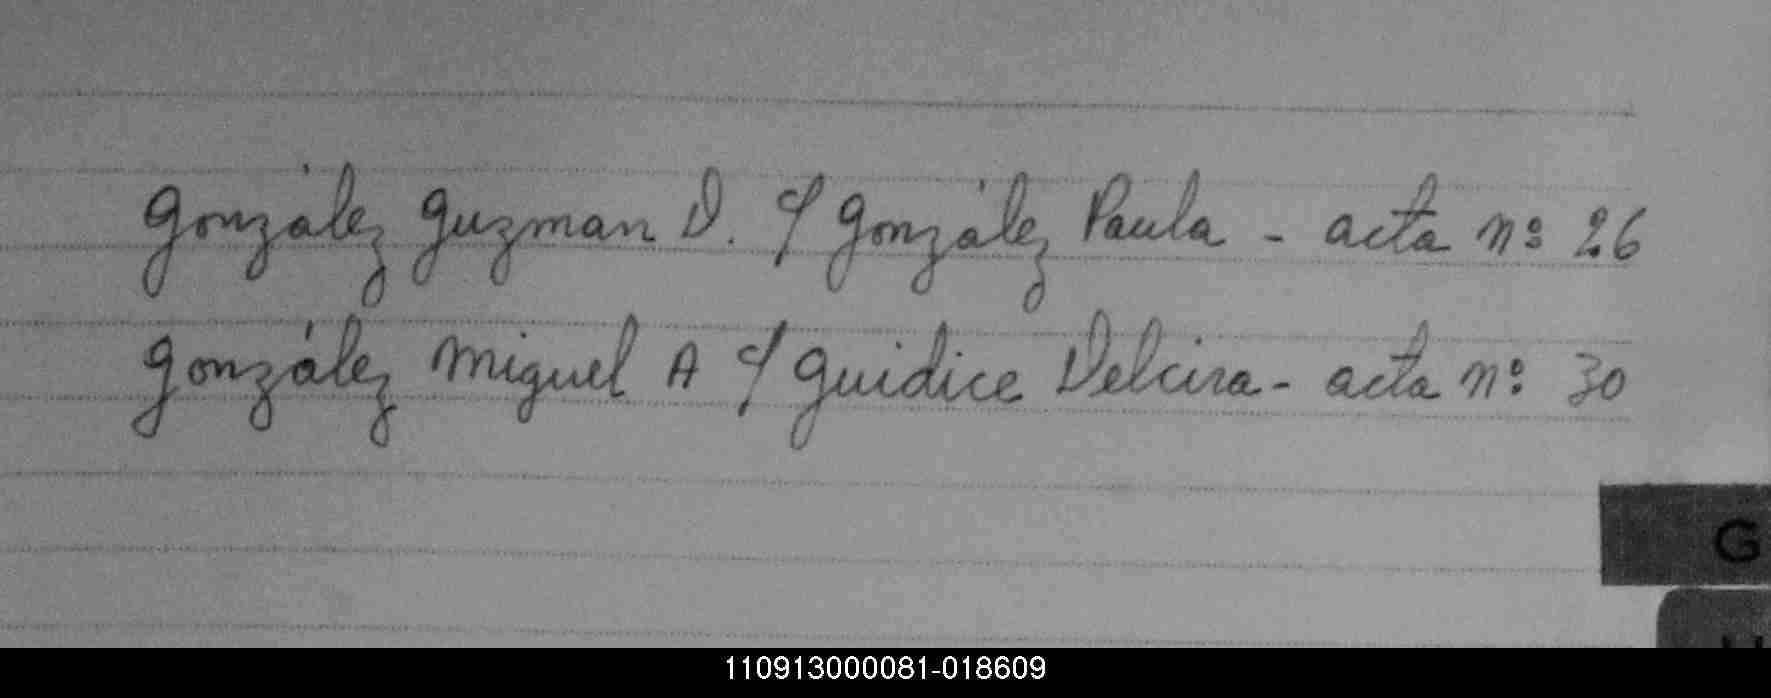 González Guzman D. c/ González Paula - acta nº 26
González Miguel A c/ Guidice Delcira - acta nº 30
G
H
110913000081-018609